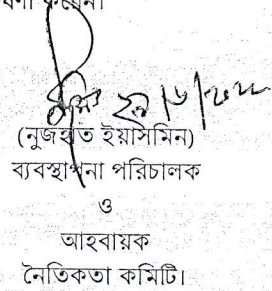 (নুজহাত ইয়াসমিন)
ব্যবস্থাপনা পরিচালক
ও
আহবায়ক
নৈতিকতা কমিটি।